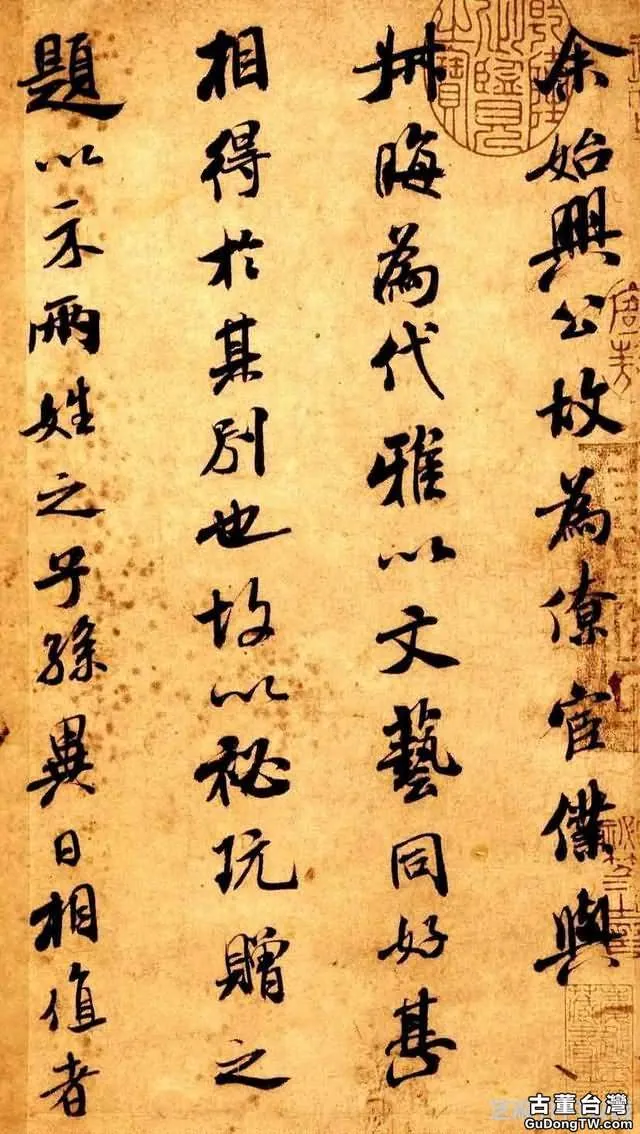 余始興公故為僚宦僕與
叔晦為代雅以文藝同好甚
相得於其別也故以祕玩贈之
題以示兩姓之子孫異日相值者
乾隆御覽之寶
古董台灣
GuDongTW.com